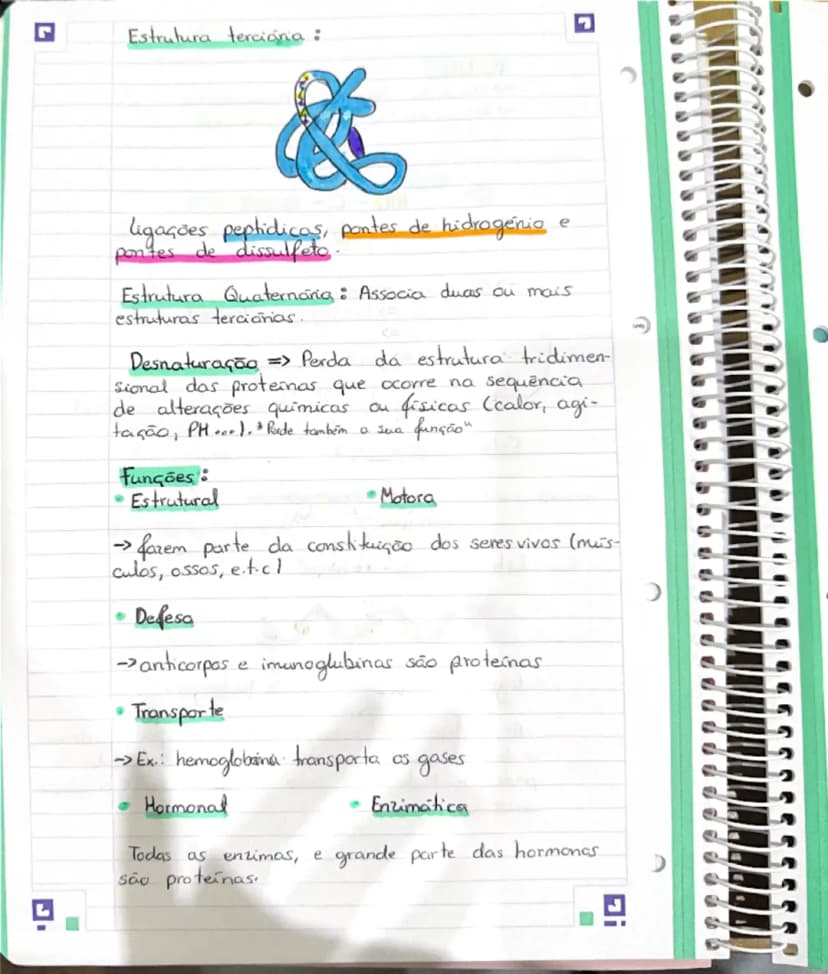 Estrutura terciária :
ligações peptídicas, pontes de hidrogénio e
pontes de dissulfeto.
Estrutura Quaternária : Associa duas ou mais
estruturas terciárias.
Desnaturação => Perda da estrutura tridimen-
sional das proteínas que ocorre na sequência
de alterações químicas ou físicas (calor, agi-
tação, PH ...). "Perde também a sua função"
Funções :
• Estrutural • Motora
→ fazem parte da constituição dos seres vivos (mús-
culos, ossos, e.t.c)
• Defesa
→ anticorpos e imunoglubinas são proteínas
• Transporte
→ Ex.: hemoglobina transporta os gases
• Hormonal • Enzimática
Todas as enzimas, e grande parte das hormonas
são proteínas.